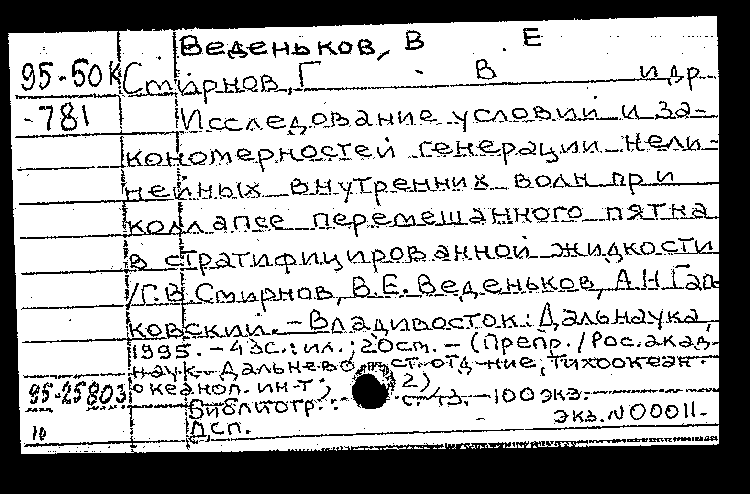 Веденьков, В Е
95-50К Смирнов, Г В и др
-781 Исследование условий и за-
кономерностей генерации нели-
нейных внутренних волн при
коллапсе перемешанного пятна
в стратифицированной жидкости
/Г.В. Смирнов, В.Е. Веденьков, А.Н. Гап-
ковский. - Владивосток: Дальнаука,
1995. - 43с.: ил.; 20см. - (Препр. / Рос. акад.
наук. Дальнево ст. отд-ние, Тихоокеан.
95-25803 океанол. ин-т; 2)
Библиогр.: с. 43. - 100 экз.
экз. N 00011.-
10 Дсп.